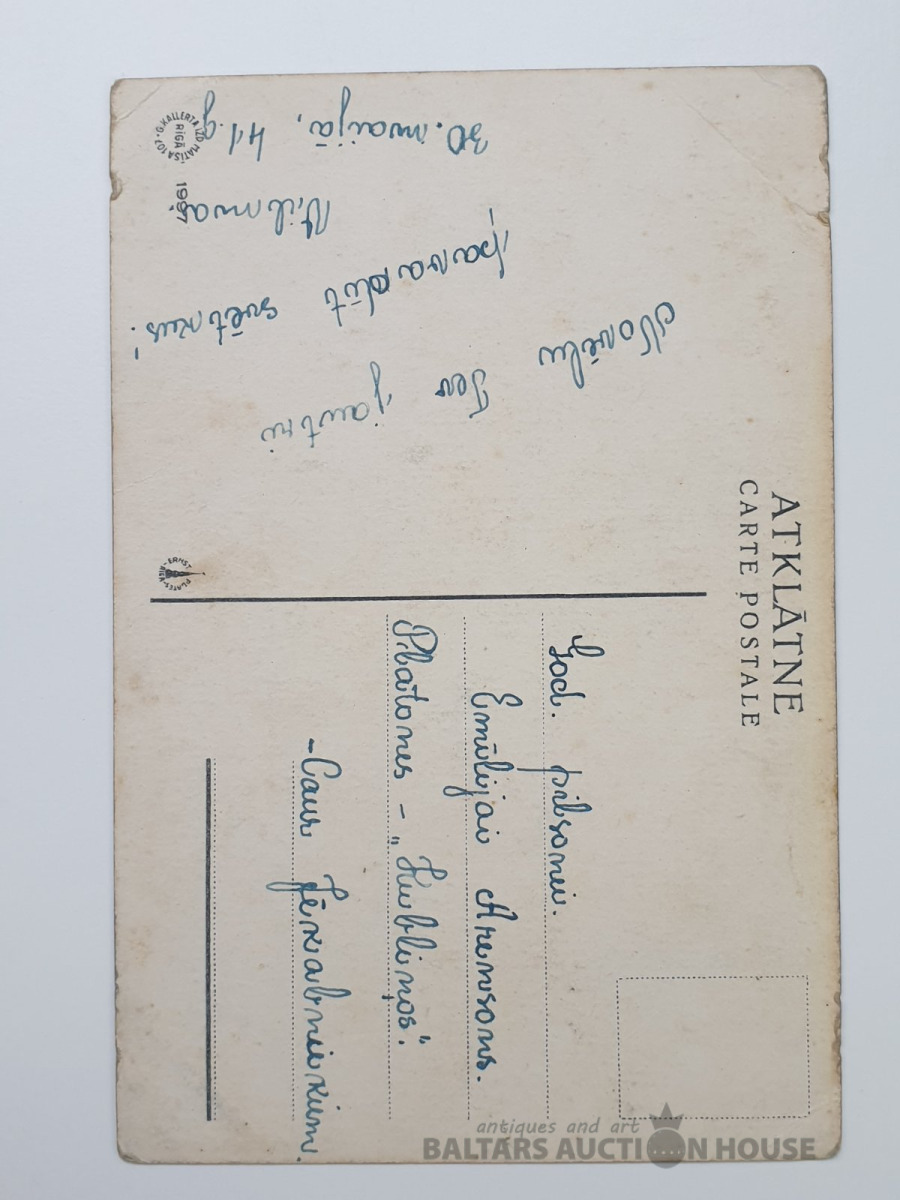 ATKLĀTNE
CARTE POSTALE
Novēlu Tev jautri
pavadīt svētkus!
Vilma.
30. maijā, 41. g
G. KALLERTA IZD. MATĪSA 107
RĪGĀ
ERNST PLATES RĪGĀ
God. pilsonei.
Emīlijai Arensons.
"Kublinos".
-Caur Jēkabniekiem.
antiques and art
BALTARS AUCTION HOUSE